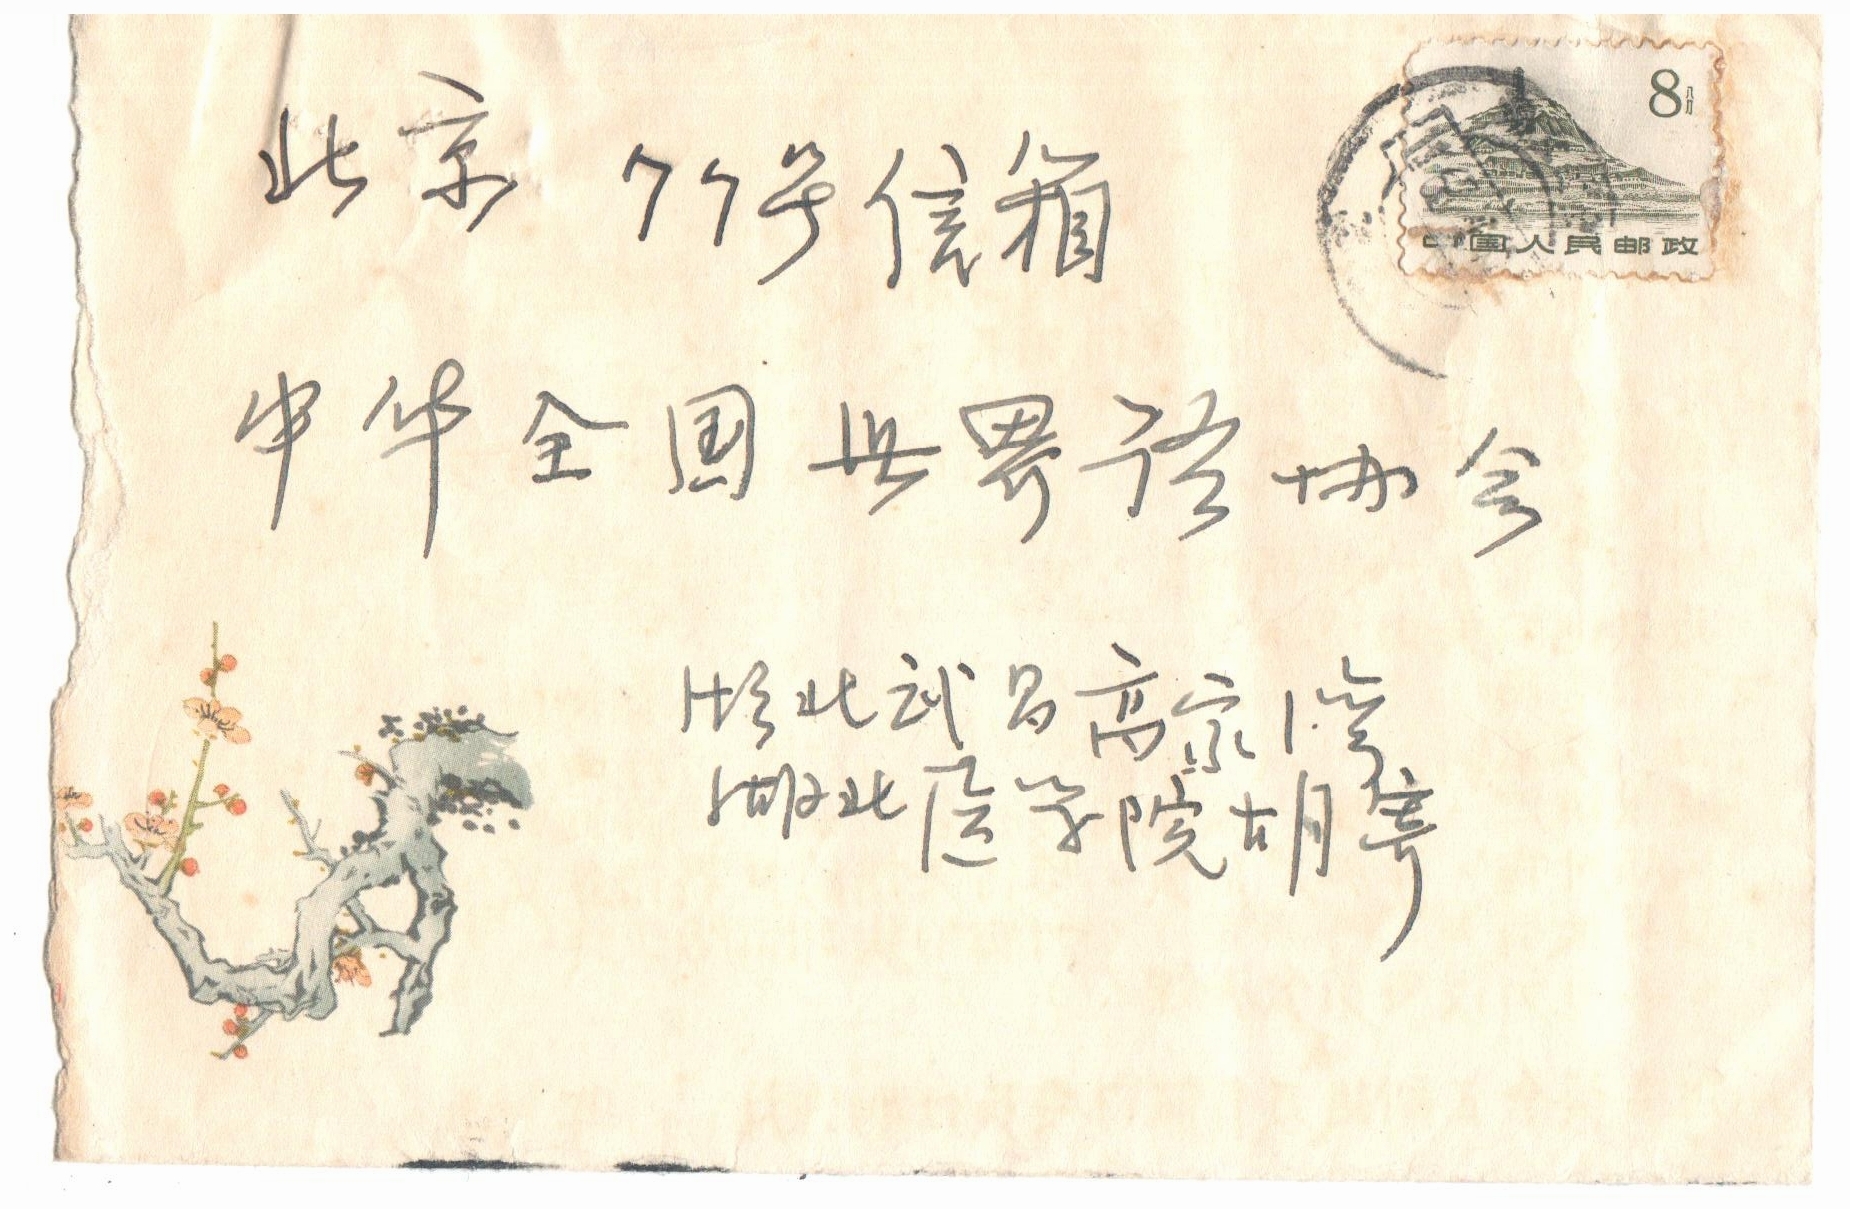 8八分
中国人民邮政
北京 77号信箱
中华全国世界语协会
湖北武昌高家湾
湖北医学院胡寄